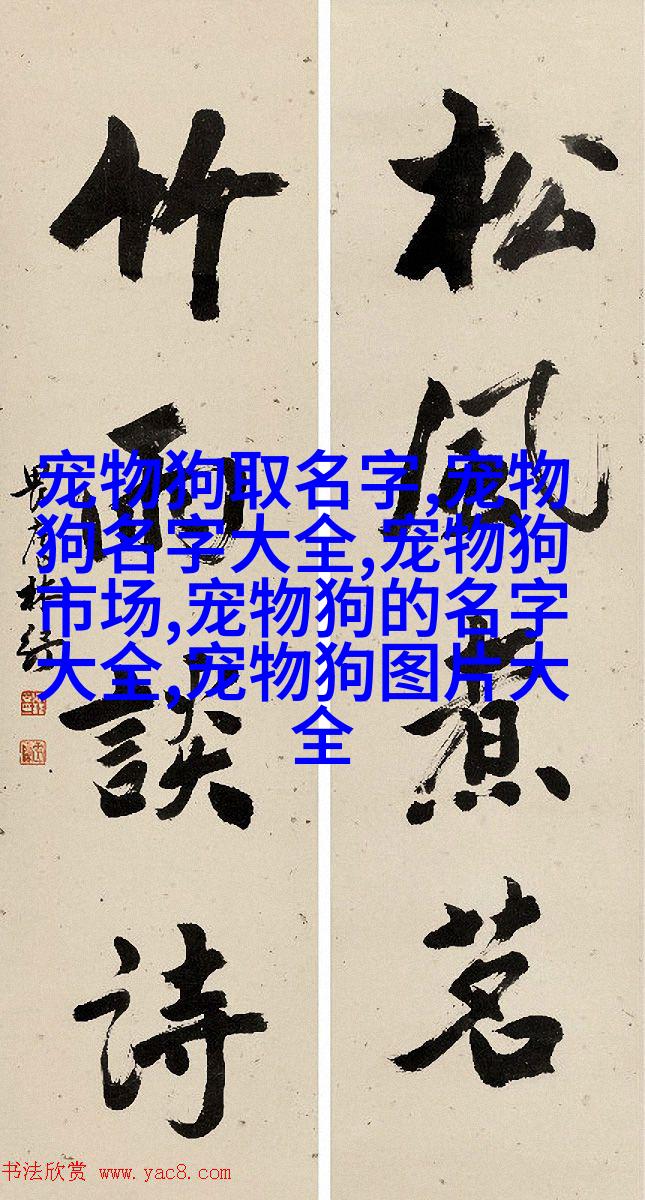 松風煮茗
竹雨談詩
宠物狗取名字,宠物
狗名字大全,宠物狗
市场,宠物狗的名字
大全,宠物狗图片大
全
书法欣赏 www.yac8.com